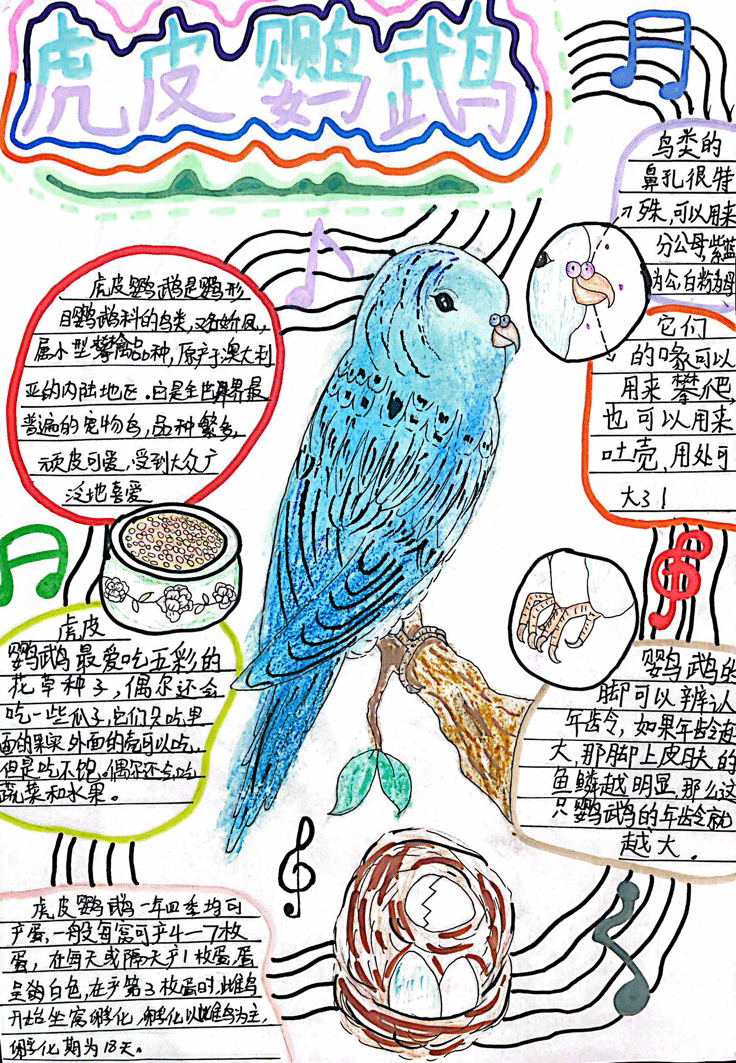 虎皮鹦鹉
虎皮鹦鹉是鹦形
目鹦鹉科的鸟类，又名娇凤，
属小型攀禽品种，原产于澳大利
亚的内陆地区。它是全世界最
普遍的宠物鸟，品种繁多，
顽皮可爱，受到大众广
泛地喜爱
鸟类的
鼻孔很特
殊，可以用来
分公母紫蓝
为公，白粉为母
它们
的喙可以
用来攀爬，
也可以用来
吐壳，用处可
大了！
虎皮
鹦鹉最爱吃五彩的
花草种子，偶尔还会
吃一些瓜子，它们只吃里
面的果实外面的壳可以吃，
但是吃不饱。偶尔还会吃
蔬菜和水果。
鹦鹉的
脚可以辨认
年龄令，如果年龄越
大，那脚上皮肤的
鱼鳞越明显，那么这
只鹦鹉的年龄就
越大。
虎皮鹦鹉一年四季均可
产蛋，一般每窝可产4—7枚
蛋，在每天或隔天产1枚蛋，蛋
呈的白色，在产第3枚蛋时，雌鸟
开始坐窝孵化，孵化以雌鸟为主，
孵化期为18天。